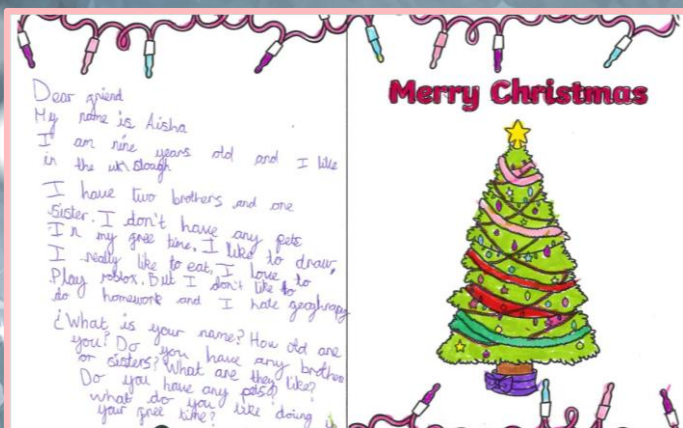 Dear friend
My name is Aisha
I am nine years old and I like
in the uk slough
I have two brothers and one
sister. I don't have any pets
In my free time, I like to draw,
I really like to eat, I love to
Play roblox. But I don't like to
do homework and I hate geoghrapy
¿What is your name? How old are
you? Do you have any brother
or sisters? What are they like?
Do you have any pets?
what do you like doing
your free time?
Merry Christmas